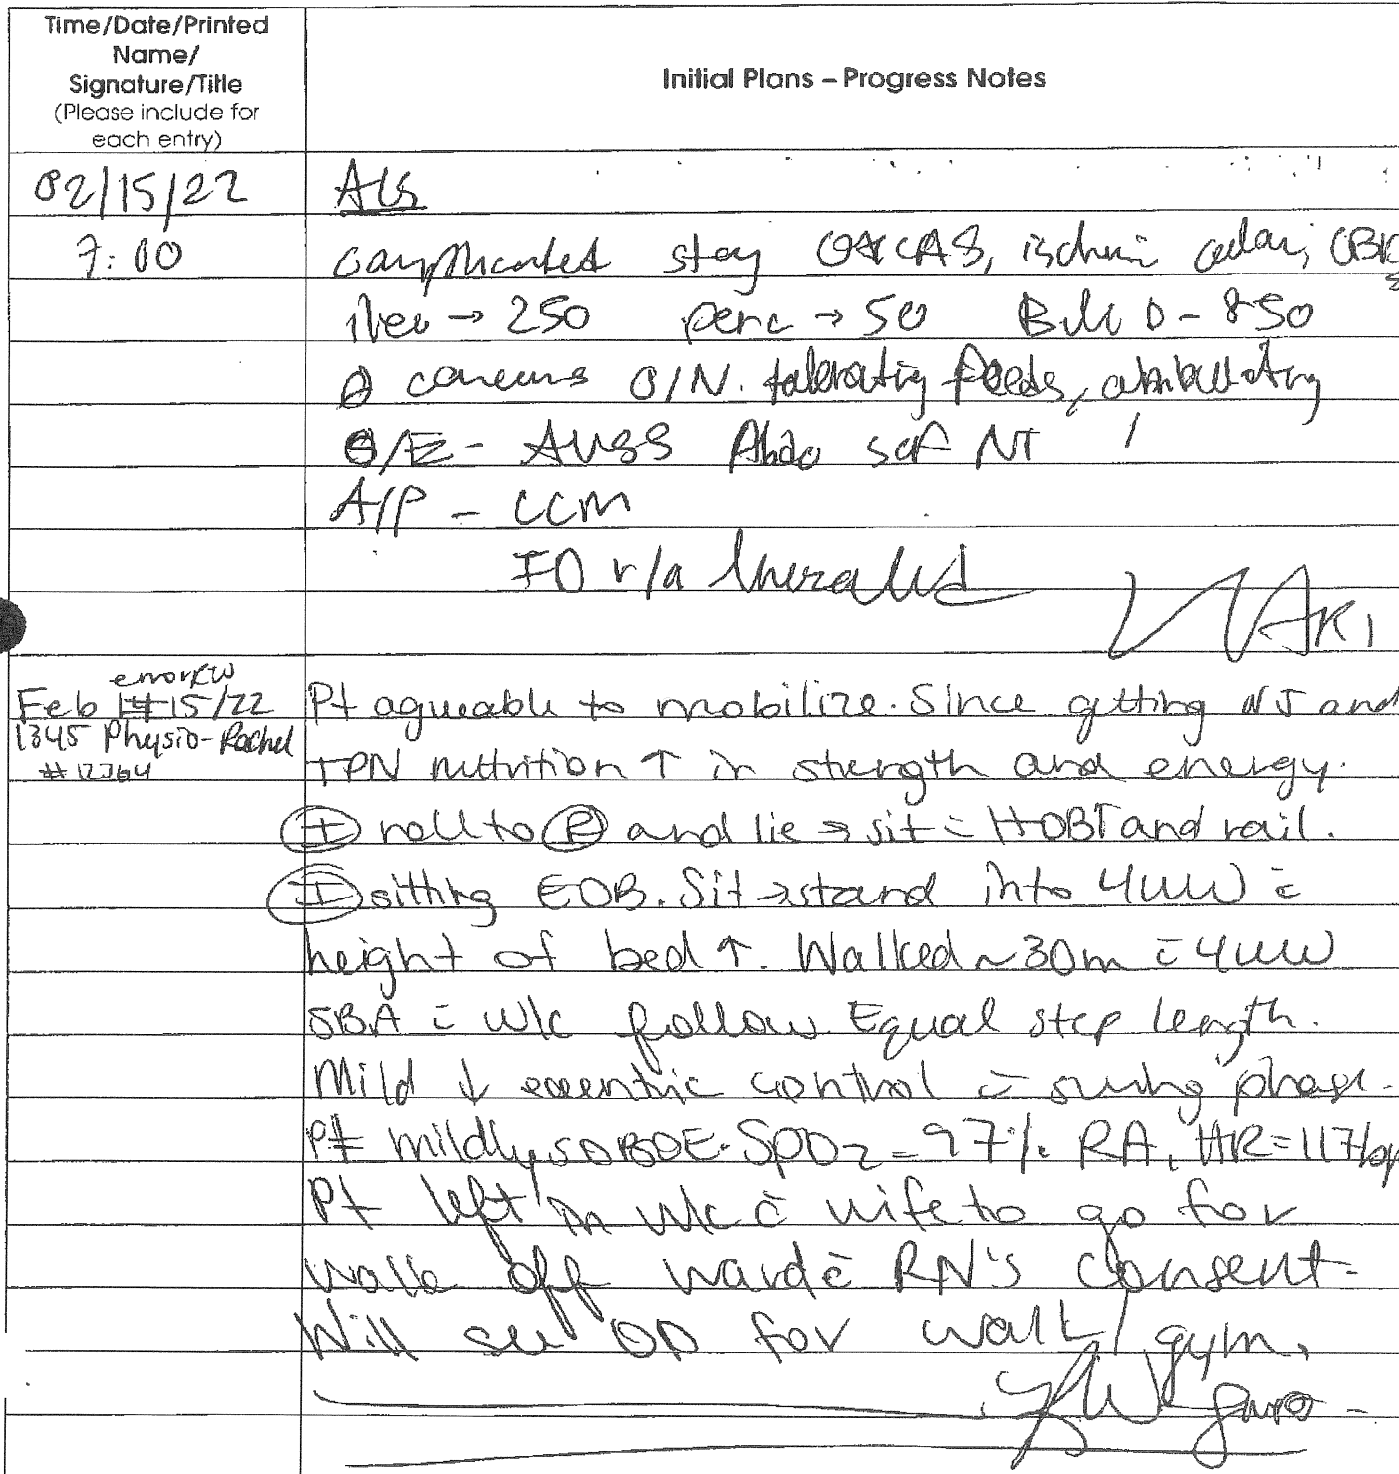 Time/Date/Printed
Name/
Signature/Title
(Please include for
each entry)
Initial Plans – Progress Notes
02/15/22
7:00
complicated stay
→ 250 perc → 50 - 850
concerns O/N. tolerating feeds, ambulating
O/E - AVSS Abdo NT
A/P - CCM
r/a
error KW
Feb 15/22
1345 Physio-Rachel
Pt agreeable to mobilize. Since getting NJ and
TPN nuttrition ↑ in strength and energy.
I roll to R and lie → sit c̄ HOBT and rail.
I sitting EOB. Sit → stand into 4WW c̄
height of bed ↑. Walked ~30m c̄ 4WW
SBA c̄ w/c follow. Equal step length.
Mild ↓ eccentric control c̄ swing phase.
Pt mildly SOBOE. SPO2 = 97% RA, HR = 117
Pt left in w/c c̄ wife to go for
walk off ward c̄ RN's consent.
Will see OD for walk/gym.